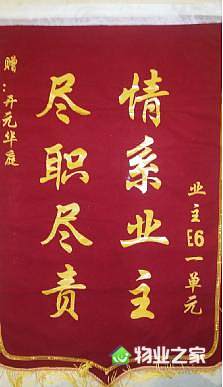 赠:开元华庭
情系业主
尽职尽责
业主E6一单元
物业之家